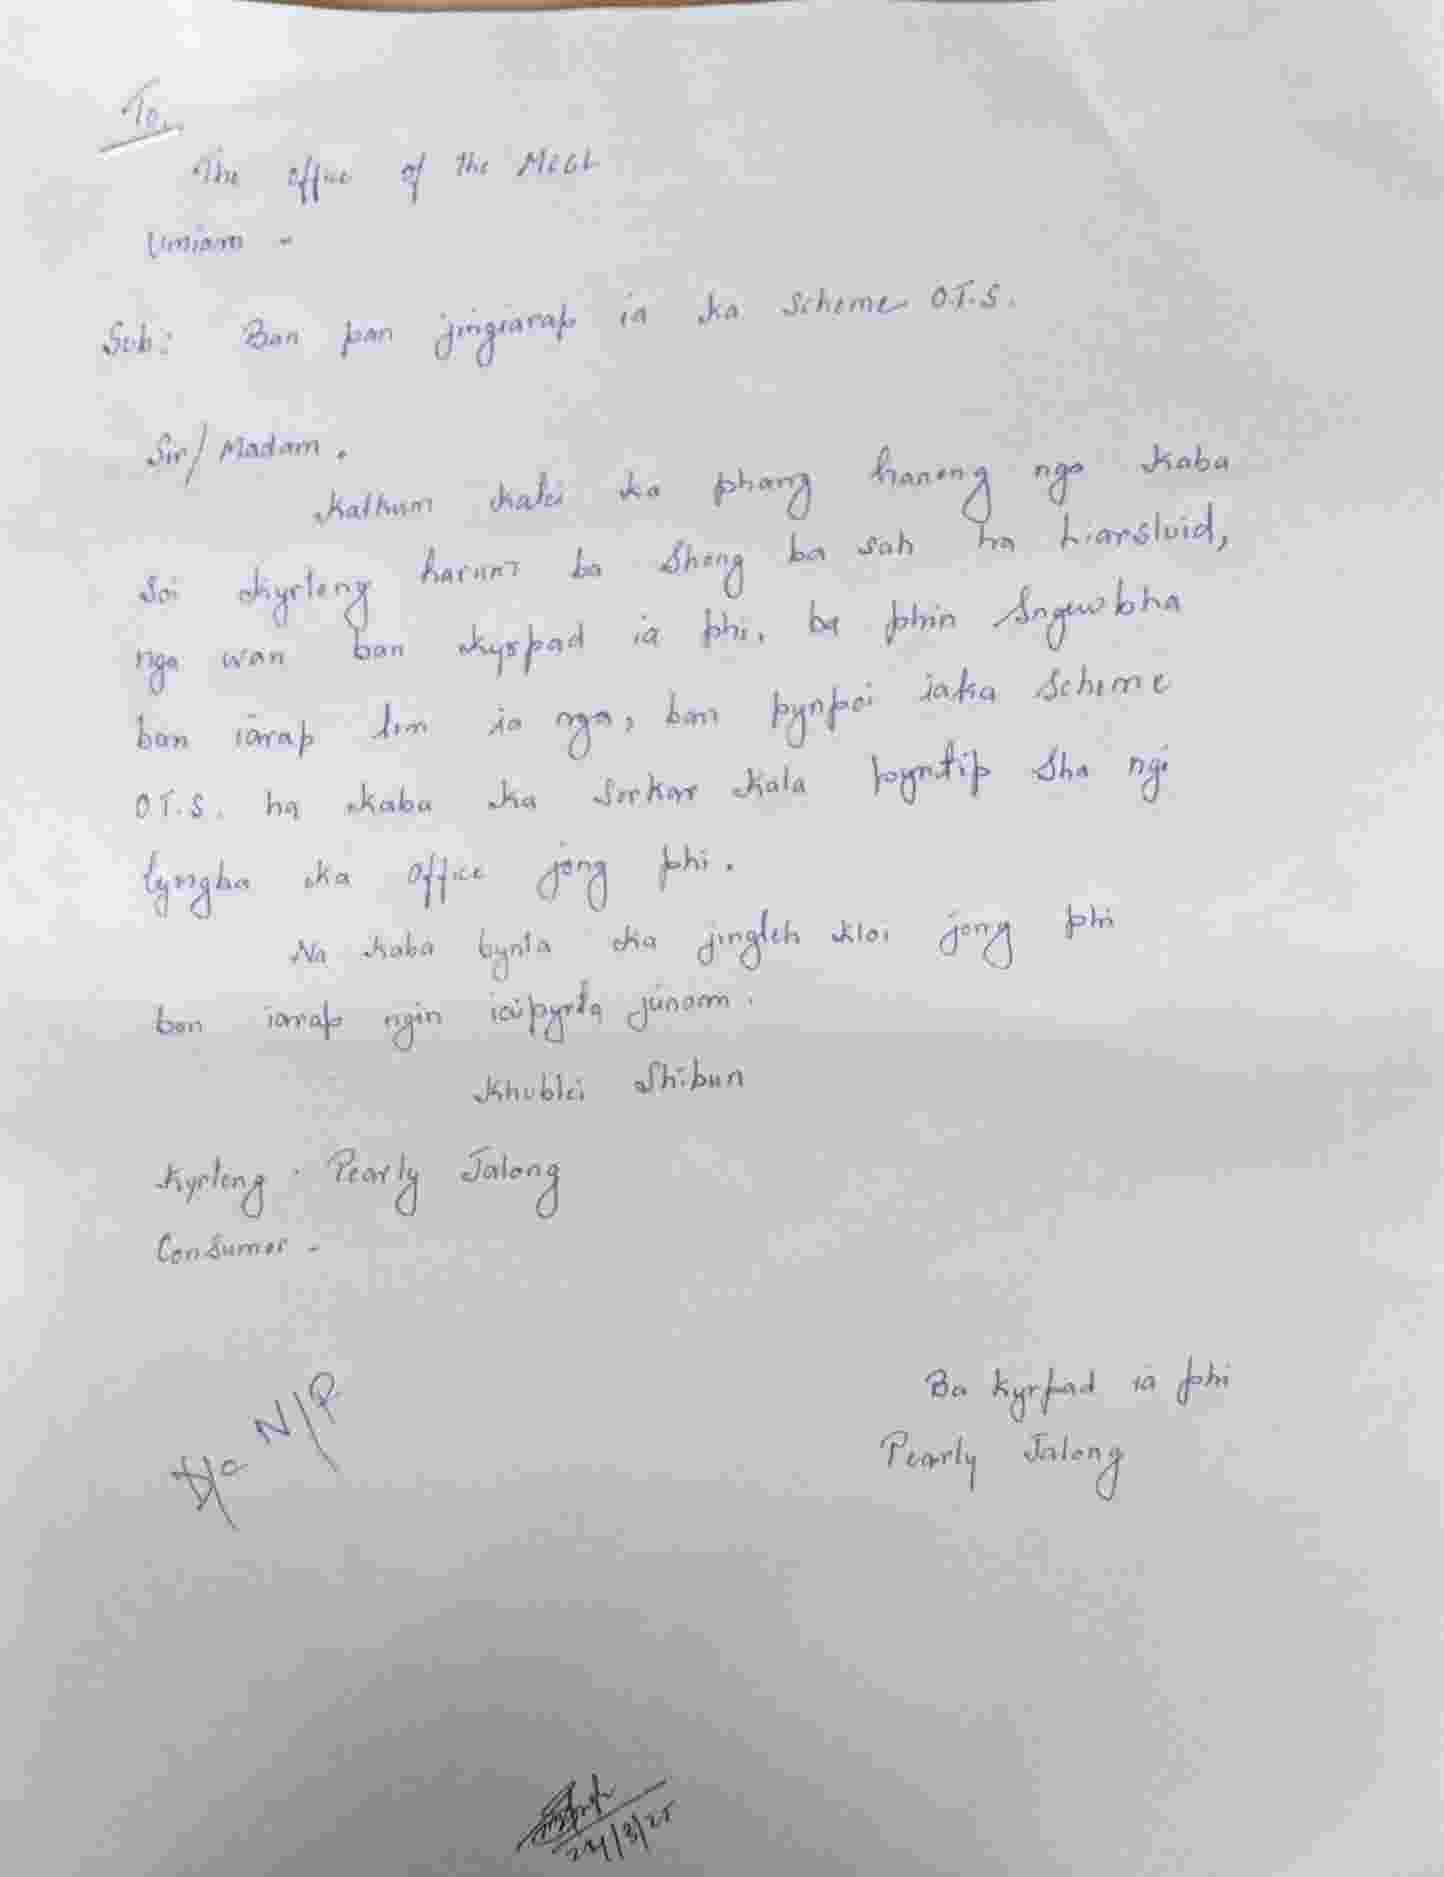 To,
The office of the MeCL
Umiam -
Sub: Ban pan jingiarap ia ka Scheme O.T.S.
Sir/ Madam.
Katkum kalei ka phang haneng nga kaba
soi kyrteng harum ba Shong ba sah ha Liarsluid,
nga wan ban kyrpad ia phi, ba phin Sngewbha
ban iarap lem ia nga, ban pynpoi iaka Scheme
O.T.S. ha kaba ka Sorkar kala pyntip Sha ngi
lyngba ka office jong phi.
Na kaba bynta ka jingleh kloi jong phi
ban iarap ngin iai pynta junom.
Khublei Shibun
Kyrteng. Pearly Jalong
Consumer -
N/P
Ba kyrpad ia phi
Pearly Jalong
24/3/25